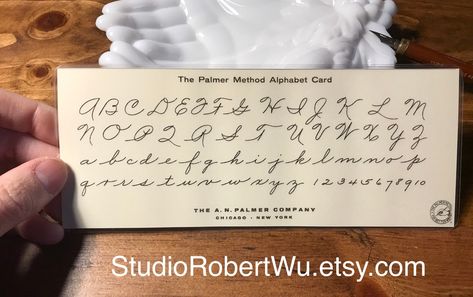 The Palmer Method Alphabet Card
A B C D E F G H I J K L M
N O P Q R S T U V W X Y Z
a b c d e f g h i j k l m n o p
q r s t u v w x y z 1 2 3 4 5 6 7 8 9 10
THE A. N. PALMER COMPANY
CHICAGO · NEW YORK
StudioRobertWu.etsy.com